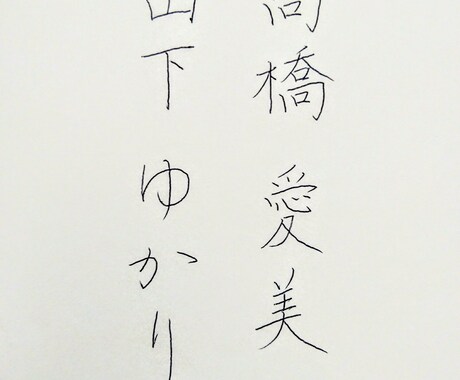 高橋 愛美
山下 ゆかり